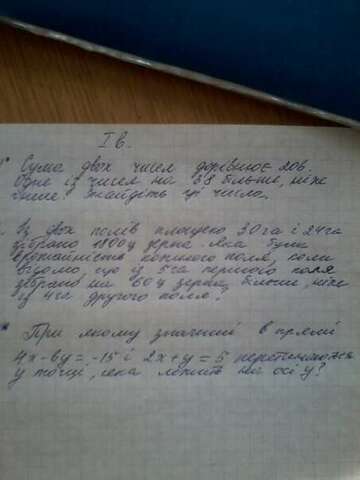 I в.
Сума двох чисел дорівнює 206.
Одне із чисел на 38 більше, ніж
інше. Знайдіть ці числа.
Із двох полів площею 30 га і 24 га
зібрано 1800 ц зерна. Яка була
врожайність кожного поля, коли
відомо, що із 5 га першого поля
зібрано на 60 ц зерна більше, ніж
із 4 га другого поля?
При якому значенні в прямі
4x - by = -15 і 2x + y = 5 перетинаються
у точці, яка лежить на осі y?